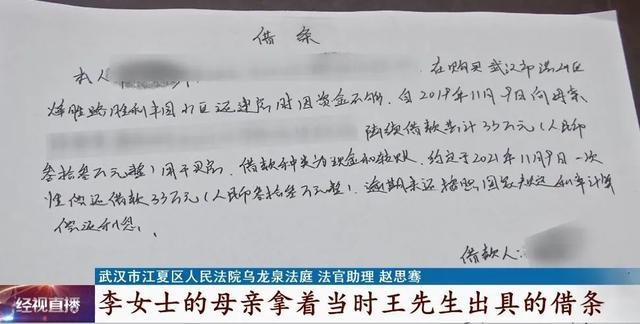 借条
我人 在购买武汉市洪山区
还建房时因资金不够,自2018年11月9日向母亲
陆续借款共计33万元(人民币
叁拾叁万元整)用于买房,借款种类为现金和转账,约定于2021年11月9日一次
性偿还借款33万元(人民币叁拾叁万元整),逾期未还按照国家规定利率计算
偿还利息。
借款人:
武汉市江夏区人民法院乌龙泉法庭 法官助理 赵思骞
经视直播
李女士的母亲拿着当时王先生出具的借条